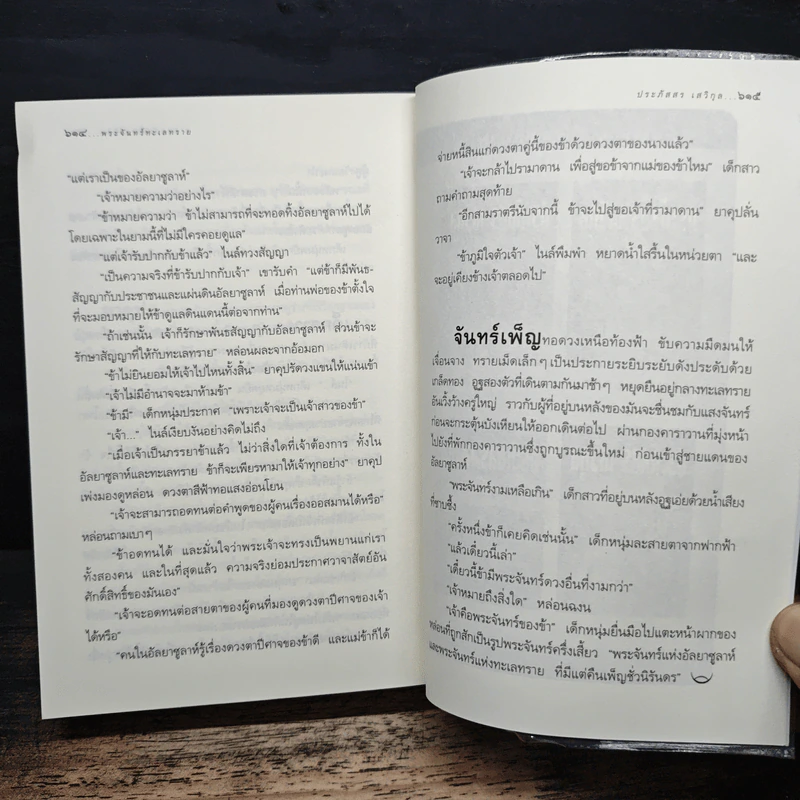 ๖๑๔...พระจันทร์ทะเลทราย
"แต่เราเป็นของอัลยาซูลาห์"
"เจ้าหมายความว่าอย่างไร"
"ข้าหมายความว่า ข้าไม่สามารถที่จะทอดทิ้งอัลยาซูลาห์ไปได้
โดยเฉพาะในยามนี้ที่ไม่มีใครคอยดูแล"
"แต่เจ้ารับปากกับข้าแล้ว" ไนล์ทวงสัญญา
"เป็นความจริงที่ข้ารับปากกับเจ้า" เขารับคำ "แต่ข้าก็มีพันธ-
สัญญากับประชาชนและแผ่นดินอัลยาซูลาห์ เมื่อท่านพ่อของข้าตั้งใจ
ที่จะมอบหมายให้ข้าดูแลดินแดนนี้ต่อจากท่าน"
"ถ้าเช่นนั้น เจ้าก็รักษาพันธสัญญากับอัลยาซูลาห์ ส่วนข้าจะ
รักษาสัญญาที่ให้กับทะเลทราย" หล่อนผละจากอ้อมอก
"ข้าไม่ยินยอมให้เจ้าไปไหนทั้งสิ้น" ยาคุปรัดวงแขนให้แน่นเข้า
"เจ้าไม่มีอำนาจจะมาห้ามข้า"
"ข้ามี" เด็กหนุ่มประกาศ "เพราะเจ้าจะเป็นเจ้าสาวของข้า"
"เจ้า..." ไนล์เงียบงันอย่างคิดไม่ถึง
"เมื่อเจ้าเป็นภรรยาข้าแล้ว ไม่ว่าสิ่งใดที่เจ้าต้องการ ทั้งใน
อัลยาซูลาห์และทะเลทราย ข้าก็จะเพียรหามาให้เจ้าทุกอย่าง" ยาคุป
เพ่งมองดูหล่อน ดวงตาสีฟ้าทอแสงอ่อนโยน
"เจ้าจะสามารถอดทนต่อคำพูดของผู้คนเรื่องออสมานได้หรือ"
หล่อนถามเบาๆ
"ข้าอดทนได้ และมั่นใจว่าพระเจ้าจะทรงเป็นพยานแก่เรา
ทั้งสองคน และในที่สุดแล้ว ความจริงย่อมประกาศวาจาสัตย์อัน
ศักดิ์สิทธิ์ของมันเอง"
"เจ้าจะอดทนต่อสายตาของผู้คนที่มองดูดวงตาปีศาจของเจ้า
ได้หรือ"
"คนในอัลยาซูลาห์รู้เรื่องดวงตาปีศาจของข้าดี และแม่ข้าก็ได้
ประภัสสร เสวิกุล...๖๑๕
จ่ายหนี้สินแก่ดวงตาคู่นี้ของข้าด้วยดวงตาของนางแล้ว"
"เจ้าจะกล้าไปรามาดาน เพื่อสู่ขอข้าจากแม่ของข้าไหม" เด็กสาว
ถามคำถามสุดท้าย
"อีกสามราตรีนับจากนี้ ข้าจะไปสู่ขอเจ้าที่รามาดาน" ยาคุปลั่น
วาจา
"ข้าภูมิใจตัวเจ้า" ไนล์พึมพำ หยาดน้ำใสรื้นในหน่วยตา "และ
จะอยู่เคียงข้างเจ้าตลอดไป"
จันทร์เพ็ญทอดวงเหนือท้องฟ้า ขับความมืดมนให้
เจื่อนจาง ทรายเม็ดเล็กๆ เป็นประกายระยิบระยับดังประดับด้วย
เกล็ดทอง อูฐสองตัวที่เดินตามกันมาช้าๆ หยุดยืนอยู่กลางทะเลทราย
อันเวิ้งว้างครู่ใหญ่ ราวกับผู้ที่อยู่บนหลังของมันจะชื่นชมกับแสงจันทร์
ก่อนจะกระตุ้นบังเหียนให้ออกเดินต่อไป ผ่านกองคาราวานที่มุ่งหน้า
ไปยังที่พักกองคาราวานซึ่งถูกบูรณะขึ้นใหม่ ก่อนเข้าสู่ชายแดนของ
อัลยาซูลาห์
"พระจันทร์งามเหลือเกิน" เด็กสาวที่อยู่บนหลังอูฐเอ่ยด้วยน้ำเสียง
ที่ซาบซึ้ง
"ครั้งหนึ่งข้าก็เคยคิดเช่นนั้น" เด็กหนุ่มละสายตาจากฟากฟ้า
"แล้วเดี๋ยวนี้เล่า"
"เดี๋ยวนี้ข้ามีพระจันทร์ดวงอื่นที่งามกว่า"
"เจ้าหมายถึงสิ่งใด" หล่อนฉงน
"เจ้าคือพระจันทร์ของข้า" เด็กหนุ่มยื่นมือไปแตะหน้าผากของ
หล่อนที่ถูกสักเป็นรูปพระจันทร์ครึ่งเสี้ยว "พระจันทร์แห่งอัลยาซูลาห์
และพระจันทร์แห่งทะเลทราย ที่มีแต่คืนเพ็ญชั่วนิรันดร"